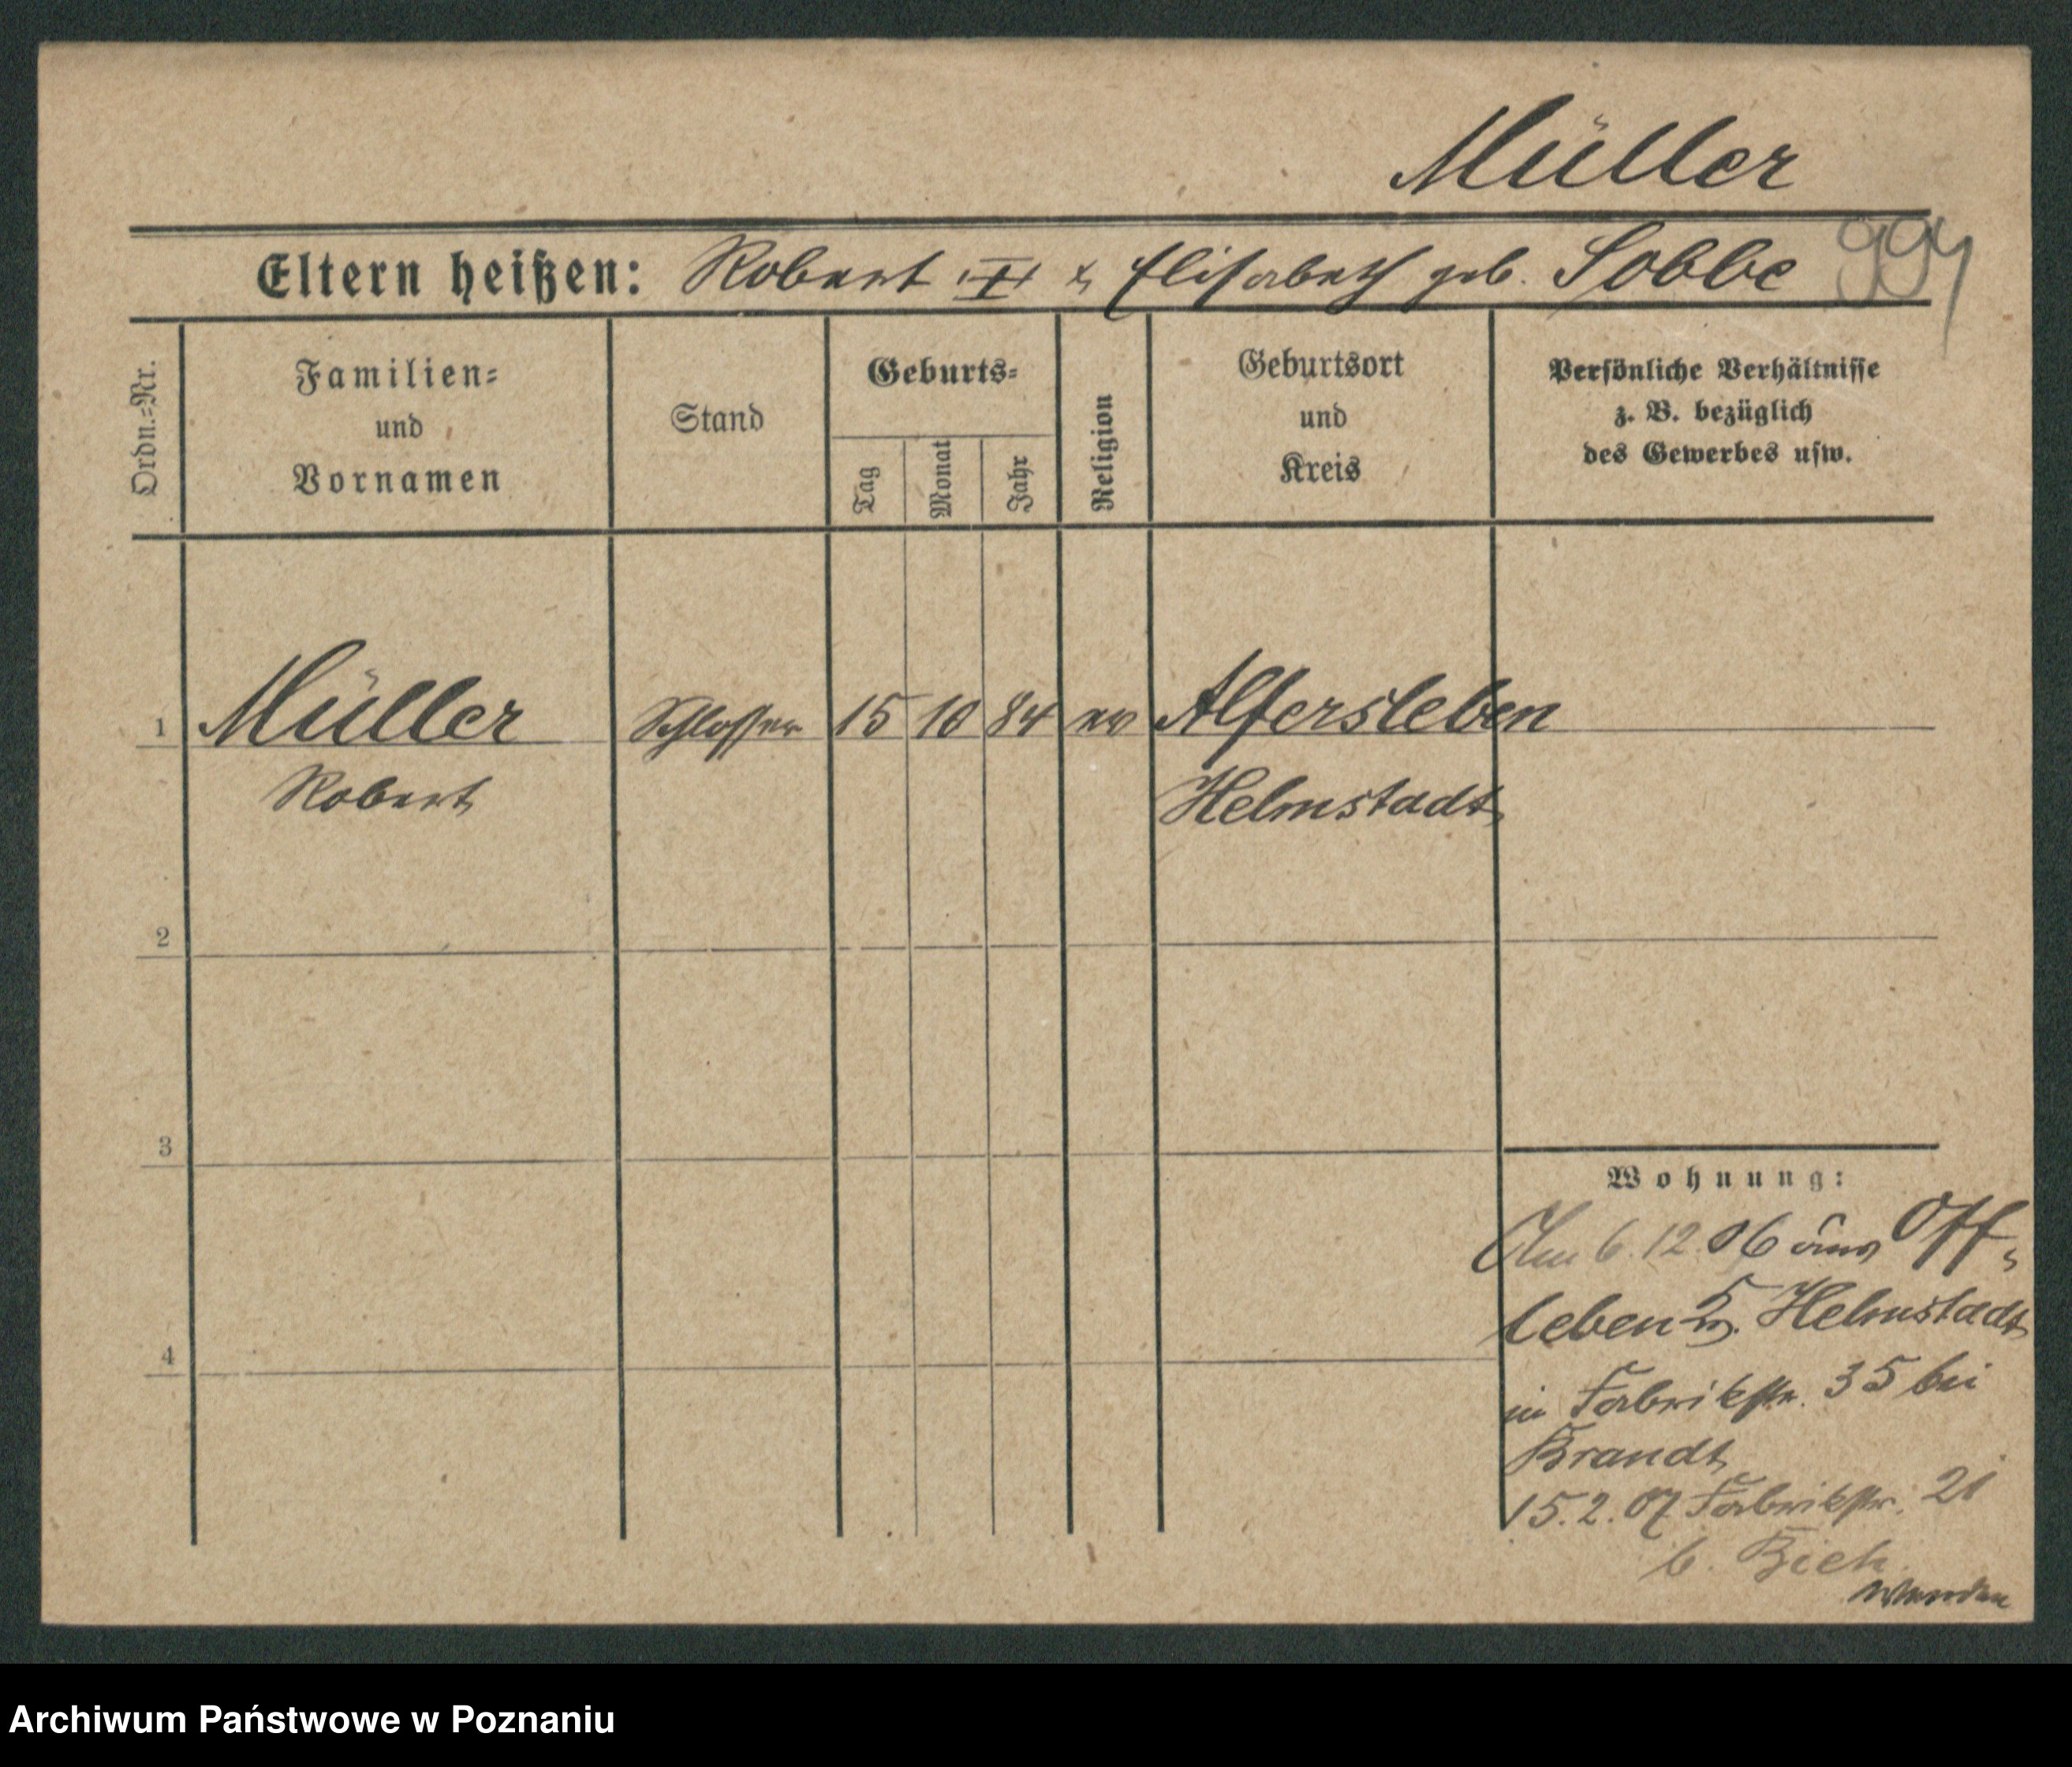 Müller
Eltern heißen: Robert & Elisabeth geb. Sobbe 994
Ordn.-Nr.
Familien-
und
Vornamen
Stand
Geburts-
Tag
Monat
Jahr
Religion
Geburtsort
und
Kreis
Persönliche Verhältnisse
z. B. bezüglich
des Gewerbes usw.
1 Müller Schlosser 15 10 84 ev Alfersleben
Robert Helmstadt
2
3
4
Wohnung:
Am 6.12.06 aus Off-
leben Helmstadt
in Fabrikstr. 35 bei
Brandt
15.2.07 Fabrikstr. 21
b.
Wenden
Archiwum Państwowe w Poznaniu